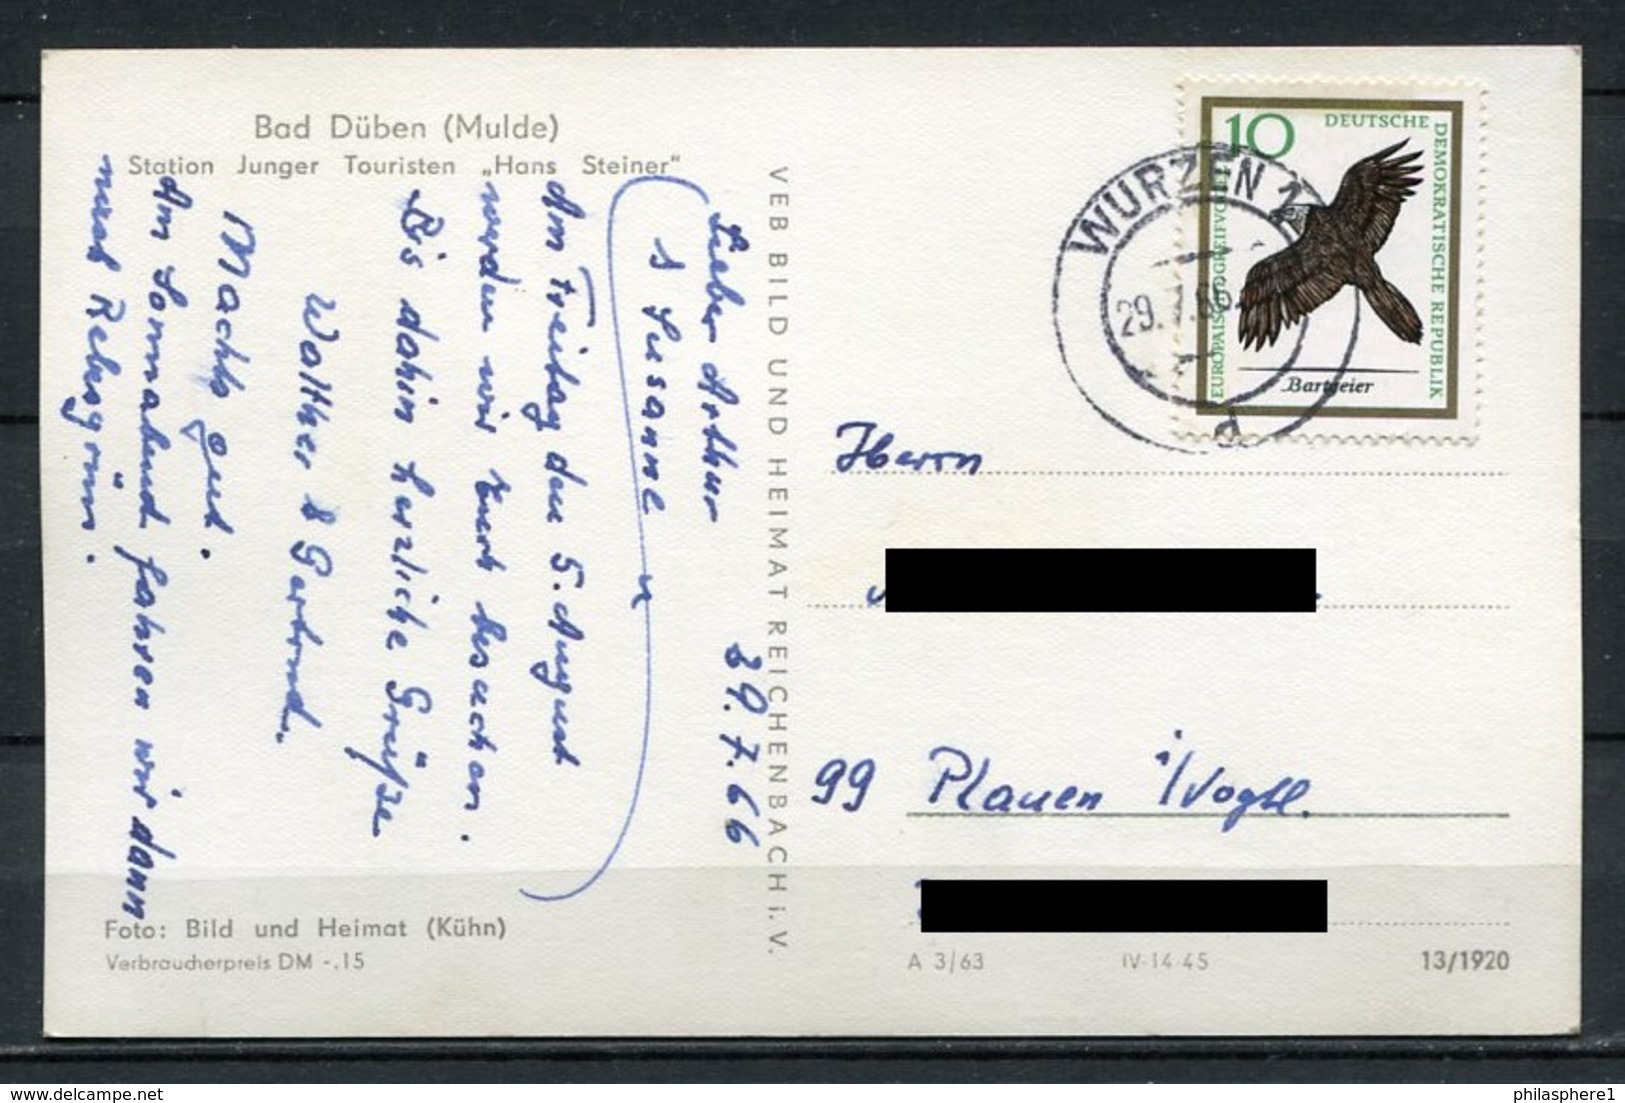 Bad Düben (Mulde)
Station Junger Touristen „Hans Steiner"
29.7.66
Lieber Arthur
& Susanne
Am Freitag den 5. August
werden wir Euch besuchen.
Bis dahin herzliche Grüße
Walther & Gertrud.
Machts gut.
Am Sonnabend fahren wir dann
nach Rehsgrün.
Foto: Bild und Heimat (Kühn)
Verbraucherpreis DM -.15
VEB BILD UND HEIMAT REICHENBACH i. V.
10
DEUTSCHE
DEMOKRATISCHE REPUBLIK
EUROPÄISCHE GREIFVÖGEL
Bartgeier
WURZEN 1
29.7.66
d
Herrn
99 Plauen i/Vogtl.
A 3/63 IV-14-45 13/1920
philasphere1